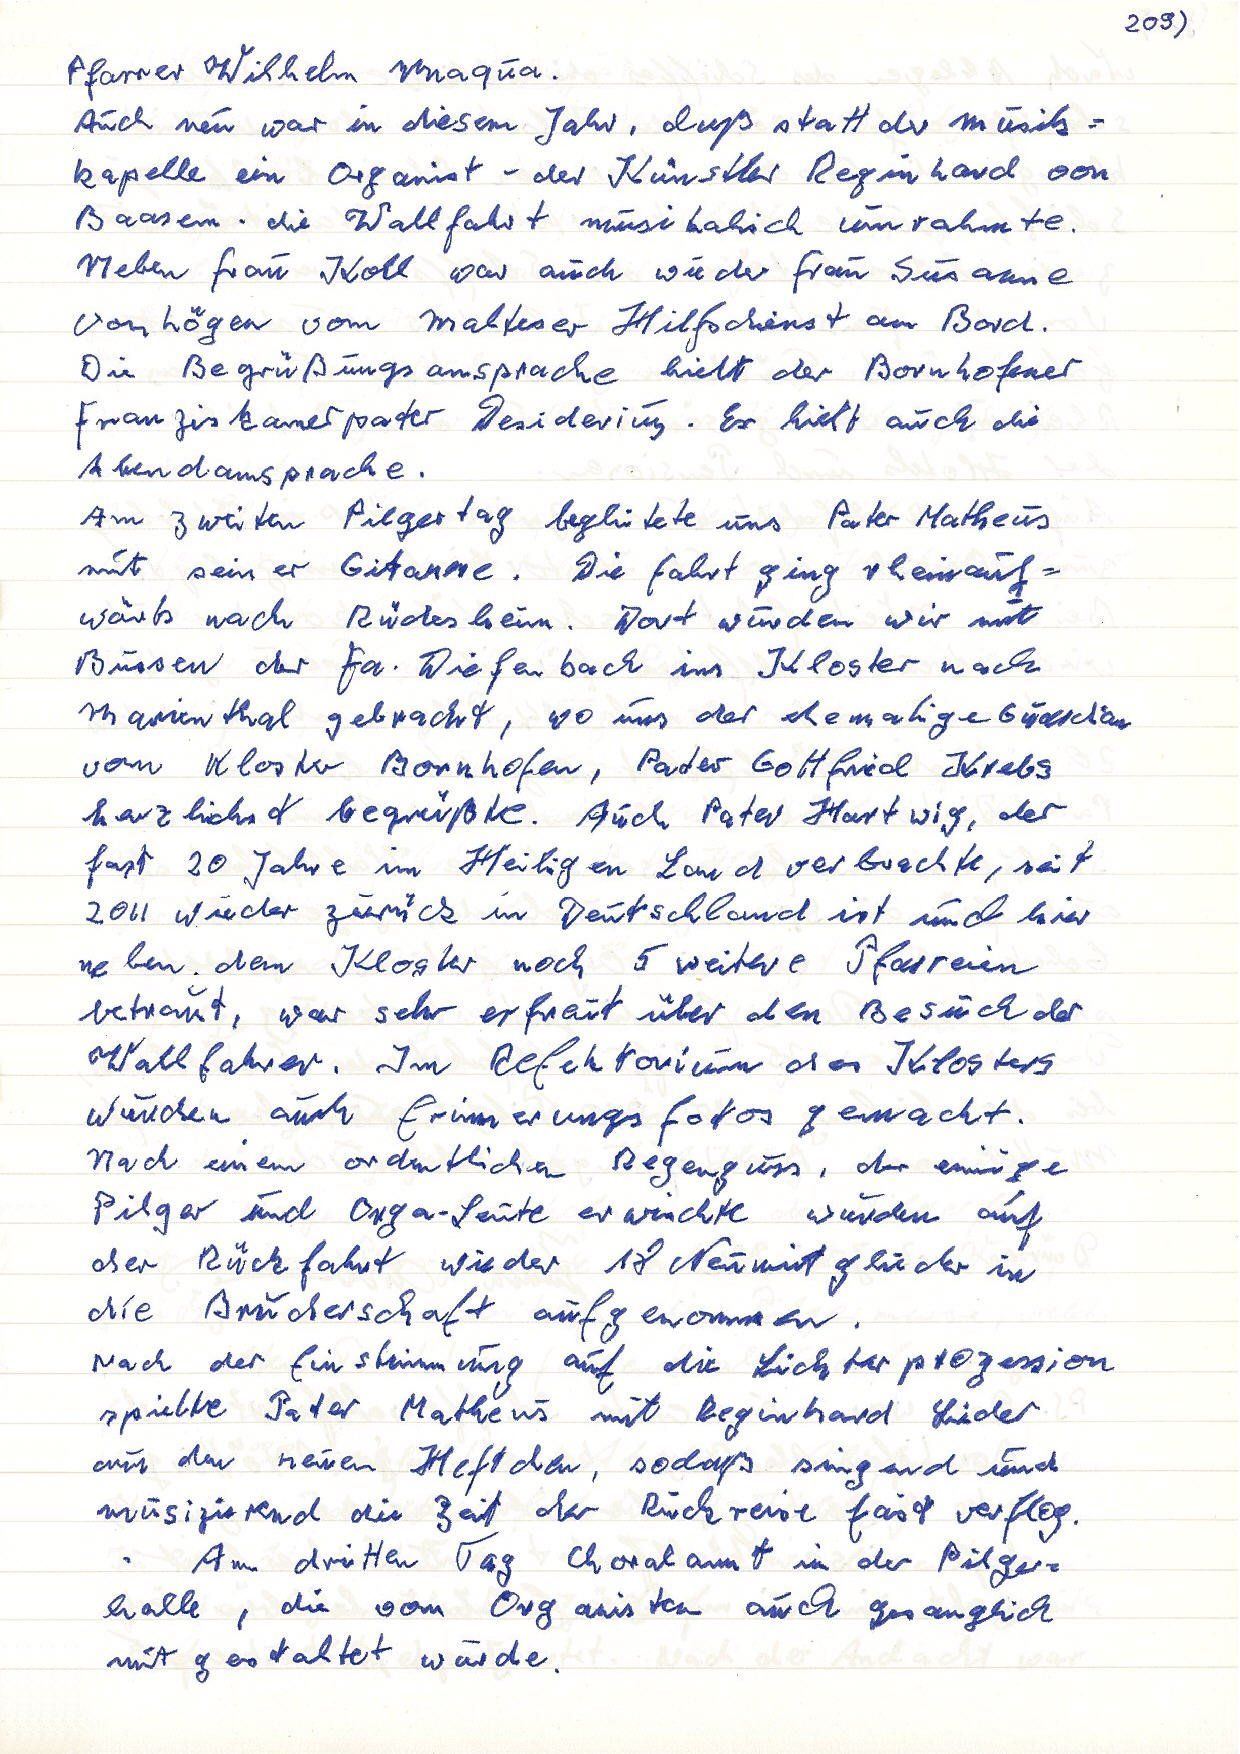 209)
Pfarrer Wilhelm Maqua.
Auch neu war in diesem Jahr, daß statt der Musik=
kapelle ein Organist - der Künstler Reginhard von
Baasem - die Wallfahrt musikalisch umrahmte.
Neben Frau Koll war auch wieder Frau Susanne
Vonhögen vom Malteser Hilfsdienst an Bord.
Die Begrüßungsansprache hielt der Bornhofener
Franziskanerpater Desiderius. Er hielt auch die
Abendansprache.
Am zweiten Pilgertag begleitete uns Pater Matheus
mit seiner Gitarre. Die Fahrt ging rheinauf=
wärts nach Rüdesheim. Dort wurden wir mit
Bussen der Fa. Diefenbach ins Kloster nach
Marienthal gebracht, wo uns der ehemalige Guardian
vom Kloster Bornhofen, Pater Gottfried Krebs
herzlichst begrüßte. Auch Pater Hartwig, der
fast 20 Jahre im Heiligen Land verbrachte, seit
2011 wieder zurück in Deutschland ist und hier
neben dem Kloster noch 5 weitere Pfarreien
betraut, war sehr erfreut über den Besuch der
Wallfahrer. Im Refektorium des Klosters
wurden auch Erinnerungsfotos gemacht.
Nach einem ordentlichen Regenguss, der einige
Pilger und Orga-Leute erwischte wurden auf
der Rückfahrt wieder 18 Neumitglieder in
die Bruderschaft aufgenommen.
Nach der Einstimmung auf die Lichterprozession
spielte Pater Matheus mit Reginhard Lieder
aus den neuen Heftchen, sodaß singend und
musizierend die Zeit der Rückreise fast verflog.
Am dritten Tag Choralamt in der Pilger=
halle, die vom Organisten auch gesanglich
mit gestaltet wurde.